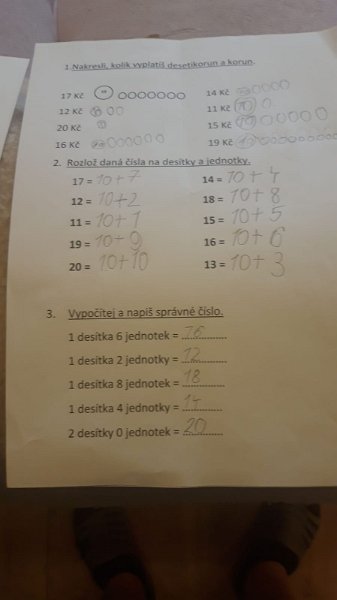 1. Nakresli, kolik vyplatíš desetikorun a korun.
17 Kč 14 Kč
12 Kč 10 11 Kč 10
20 Kč 15 Kč 10
16 Kč 10 19 Kč 10
2. Rozlož daná čísla na desítky a jednotky.
17 = 10+7 14 = 10+4
12 = 10+2 18 = 10+8
11 = 10+1 15 = 10+5
19 = 10+9 16 = 10+6
20 = 10+10 13 = 10+3
3. Vypočítej a napiš správné číslo.
1 desítka 6 jednotek = 16
1 desítka 2 jednotky = 12
1 desítka 8 jednotek = 18
1 desítka 4 jednotky = 14
2 desítky 0 jednotek = 20